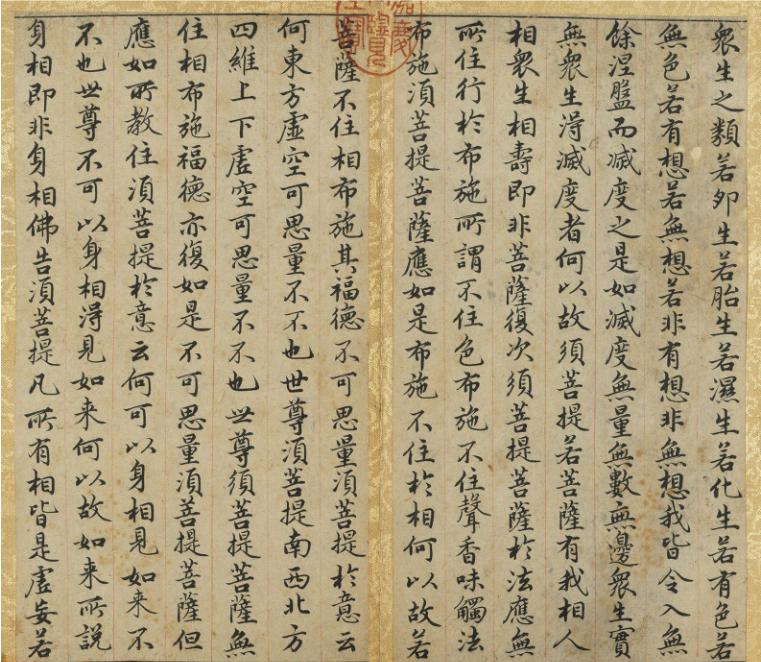 衆生之類若夘生若胎生若濕生若化生若有色若
無色若有想若無想若非有想非無想我皆令入無
餘涅盤而滅度之是如滅度無量無數無邊衆生實
無衆生得滅度者何以故須菩提若菩薩有我相人
相衆生相壽即非菩薩復次須菩提菩薩於法應無
所住行於布施所謂不住色布施不住聲香味觸法
布施須菩提菩薩應如是布施不住於相何以故若
菩薩不住相布施其福德不可思量須菩提於意云
何東方虛空可思量不不也世尊須菩提南西北方
四維上下虛空可思量不不也世尊須菩提菩薩無
住相布施福德亦復如是不可思量須菩提菩薩但
應如所教住須菩提於意云何可以身相見如来不
不也世尊不可以身相得見如来何以故如来所說
身相即非身相佛告須菩提凡所有相皆是虛妄若